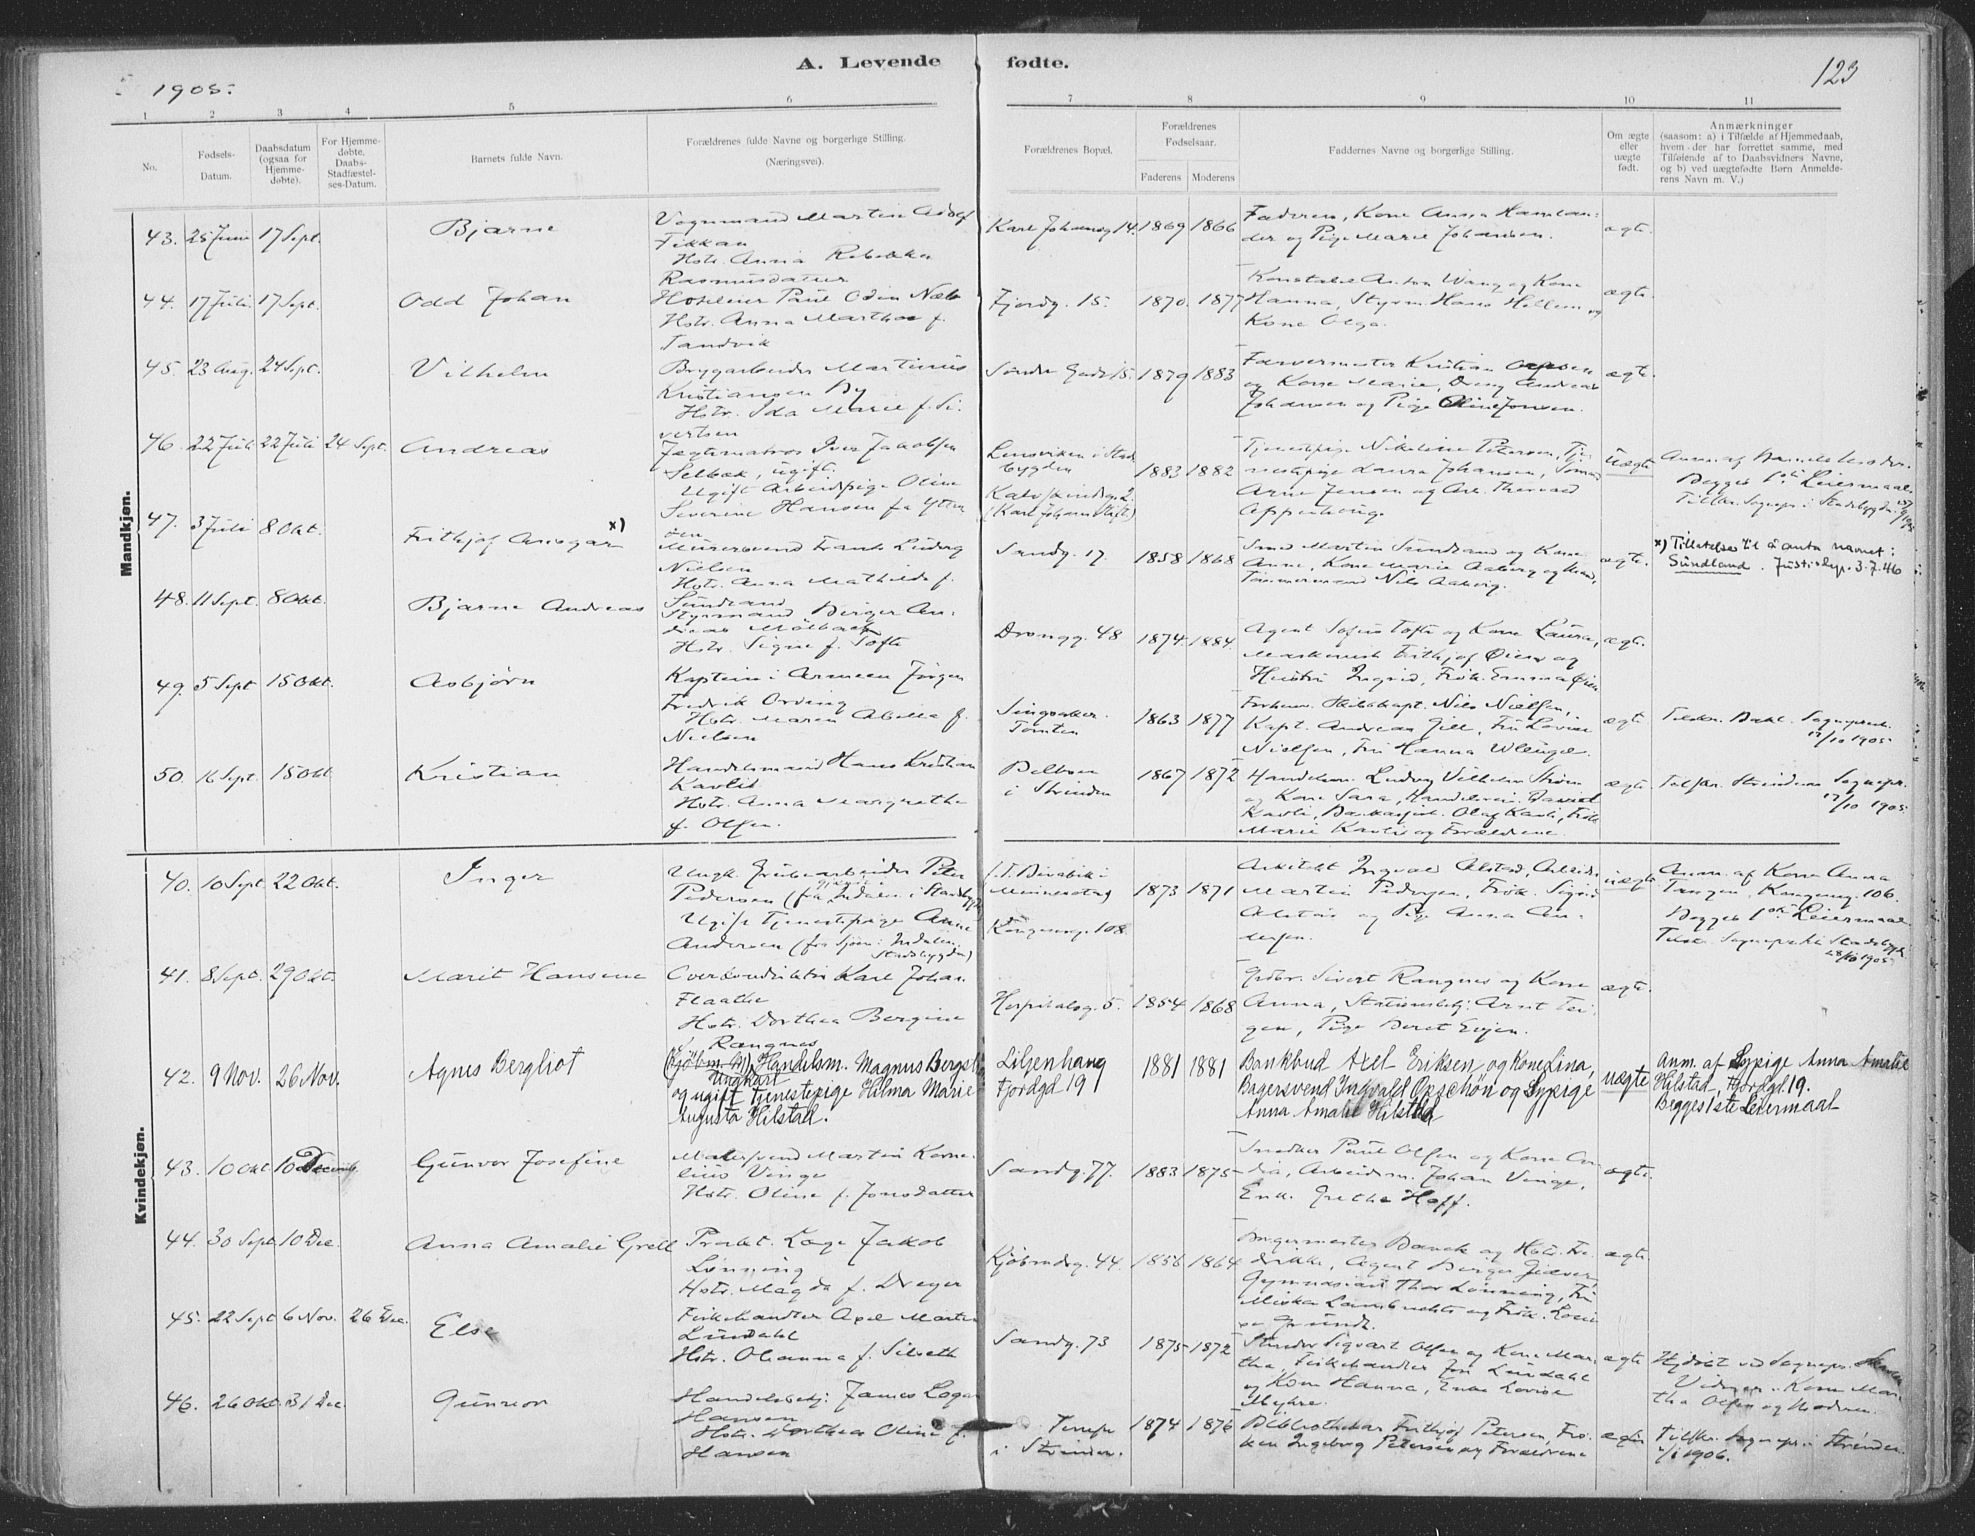 1905.
A. Levende fødte.
123
1 2 3 4 5 6 7 8 9 10 11
No.
Fødsels-Datum.
Daabsdatum (ogsaa for Hjemme-døbte).
For Hjemme-døbte, Daabs-Stadfæstel-ses-Datum.
Barnets fulde Navn.
Forældrenes fulde Navne og borgerlige Stilling.
(Næringsvei).
Forældrenes Bopæl.
Forældrenes Fødselsaar.
Faderens Moderens
Faddernes Navne og borgerlige Stilling.
Om ægte eller uægte født.
Anmærkninger
(saasom: a) i Tilfælde af Hjemmedaab, hvem der har forrettet samme, med Tilføiende af to Daabsvidners Navne, og b) ved uægtefødte Børn Anmelde-rens Navn m. V.)
Mandkjøn.
43. 25 Juni 17 Sept. Bjarne
Vognmand Martin Adolf
Fikkan
Hstr. Anna Rebekka
Rasmusdatter
Karl Johansg 14. 1869 1866
Faderen, Kone Anna Hamlan-
der og Pige Marie Johansen.
ægte.
44. 17 Juli 17 Sept. Odd Johan
Paul Odin Næss
Hstr. Anna Marthea f.
Sandvik
Fjordg. 15. 1870. 1877
Konstabel Anton Wang og Kone
Hanna, Styrm. Hans Hollum og
Kone Olga.
ægte.
45. 23 Aug. 24 Sept. Vilhelm
Bryggarbeider Martinus
Kristiansen By
Hstr. Ida Marie f. Si-
vertsen
Søndre Gade 15. 1879 1883
Farvermester Kristian Olsen
og Kone Marie, Dreng Andreas
Johansen og Pige Oline Jonsen.
ægte.
46. 22 Juli 22 Juli 24 Sept. Andreas
Jægtmatros Iver Jakobsen
Selbæk, ugift.
Ugift Arbeidspige Oline
Severine Hansen fra Ytter-
øen
Lensviken i Stads
bygden
(Karl Johans Stift.)
1883 1882
Tjenestpige Nikoline Petersen, Tje-
nestepige Laura Johansen, Sømand
Arne Jensen og Arb. Thorvald
Uægte
Anm. af Barnets Moder.
Begges 1ste Leiermaal.
Tilskr. Sognepr. i Stadsbygden
47. 3 Juli 8 Okt. Frithjof Ansgar x)
Murersvend Frants Ludvig
Nielsen
Hstr. Anna Mathilde f.
Sundland
Sandg. 17. 1858 1868
Smed Martin Sundland og Kone
Anne, Kone Marie Aaberg og
Tømmermand Nils Aaberg.
ægte.
x) Tilladelse til å anta navnet:
Sundland. Justisdep. 3.7.46
48. 11 Sept. 8 Okt. Bjarne Andreas
Styrmand Birger An-
dreas Mølbach
Hstr. Signe f. Tofte
Drongg. 48 1874. 1884.
Agent Sofus Tofte og Kone Laura,
Maskinist Frithjof Øien og
Hustru Ingrid, Frøk. Emma Øien
ægte.
49. 5 Sept 15 Okt. Asbjørn
Kaptein i Armeen Jørgen
Fredrik Ording
Hstr. Maren Abella f.
Nielsen
Singsaker-
Tomten
1863 1877
Forhenv. Skibskapt. Nils Nielsen,
Kapt. Andreas Gill, Fru Lovise
Nielsen, Fru Hanna
ægte
Tilskr. Bakl. Sognepræst.
17/10 1905
50. 16 Sept. 15 Okt. Kristian
Handelsmand Hans Kristian
Kavlie
Hstr. Anna Margrethe
f. Olsen.
i Strinden
1867 1872
Handelsm. Ludvig Vilhelm Strøm
og Kone Sara, Daniel
Kavli, Olaf Kavli, Frøk.
Marie Kavli og Forældrene.
ægte
Tilskr. Strindens Sognepr.
17/10 1905.
Kvindekjøn.
40. 10 Sept. 22 Okt. Inger
Ungk. Grubearbeider Peter
Pedersen (fra Indalen i Stadsbygden)
Ugift Tjenestepige Anne
Andersen (fra Indalen,
Stadsbygden)
Minnesota
Kongensg. 108
1873 1871
Arkitekt Ingvald Alstad, Arbeider
Martin Pedersen, Frøk. Sigrid
Alstad og Pige Anna An-
dersen.
uægte
Anm. af Kone Anna
Tangen, Kongensg. 106.
Begges 1ste Leiermaal.
28/10 1905
41. 8 Sept. 29 Okt. Marit Hansine
Karl Johan
Flaathe
Hstr. Dorthea Bergine
Rangnes
Hospitalsg. 5. 1854 1868
Grdbr. Sivert Rangnes og Kone
Anna, Stationsbetj. Arnt Tei-
gen, Pige Beret Evjen.
ægte.
42. 9 Nov. 26 Nov. Agnes Bergliot
(Kjøbm. M) Handelsm. Magnus Bergsli
Ungkarl
og ugift Tjenestepige Hilma Marie
Augusta Hilstad.
Liljenhaug
Fjordgd 19
1881 1881
Bankbud Axel Eriksen og Kone Lina,
Bagersvend Ingvald Opschøn og Sypige
Anna Amalie Hilstad
uægte
Anm. af Sypige Anna Amalie
Hilstad, Fjordgd. 19.
Begges 1ste Leiermaal
43. 10 Okt 10 Decemb. Gunvor Josefine
Malersvend Martin Korne-
lius Vinge
Hstr. Oline f. Jonsdatter
Sandg. 77. 1883 1875
Snedker Paul Olsen og Kone
Arbeidsm. Johan Vinge,
Enk. Grethe Hoff.
ægte.
44. 30 Sept. 10 Dec. Anna Amalie Grell
Prakt. Læge Jakob
Lønning
Hstr. Magda f. Dreyer
Kjøbmdsg. 44. 1856 1864
Borgermester Bauck og Hstr. Fre-
drikke, Agent Birger Giæver,
Gymnasiast Thor Lønning, Fru
ægte.
45. 22 Sept 6 Nov. 26 Dec. Else
Fiskehandler Axel Martin
Lindahl
Hstr. Oleanna f. Silseth
Sandg. 73 1875 1872
Sigvart Olsen og Kone Mar-
tha, Fiskehandler Jon Lindahl
og Kone Hanna, Enke Lovise
Myhre.
ægte
Hjdøbt ved Sognepr.
Vidner: Kone Mar-
tha Olsen og Moderen.
46. 26 Okt. 31 Dec. Gunvor
Handelsbetj. James Logan
Hansen
Hstr. Dorthea Oline f.
Hansen
i Strinden.
1874 1876
Bibliothekar Frithjof Petersen, Frø-
ken Ingeborg Petersen og Forældrene
ægte
Tilskr. Sognepr. i Strinden
1906.